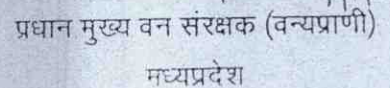 प्रधान मुख्य वन संरक्षक (वन्यप्राणी)
मध्यप्रदेश